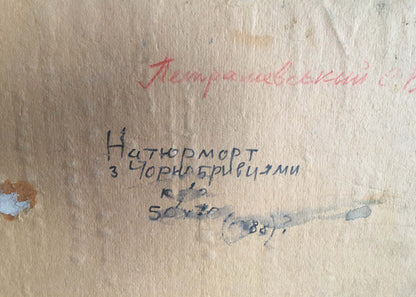 Петрашевський О.В
Натюрморт
з Чорнобривцями
к/о
50х70